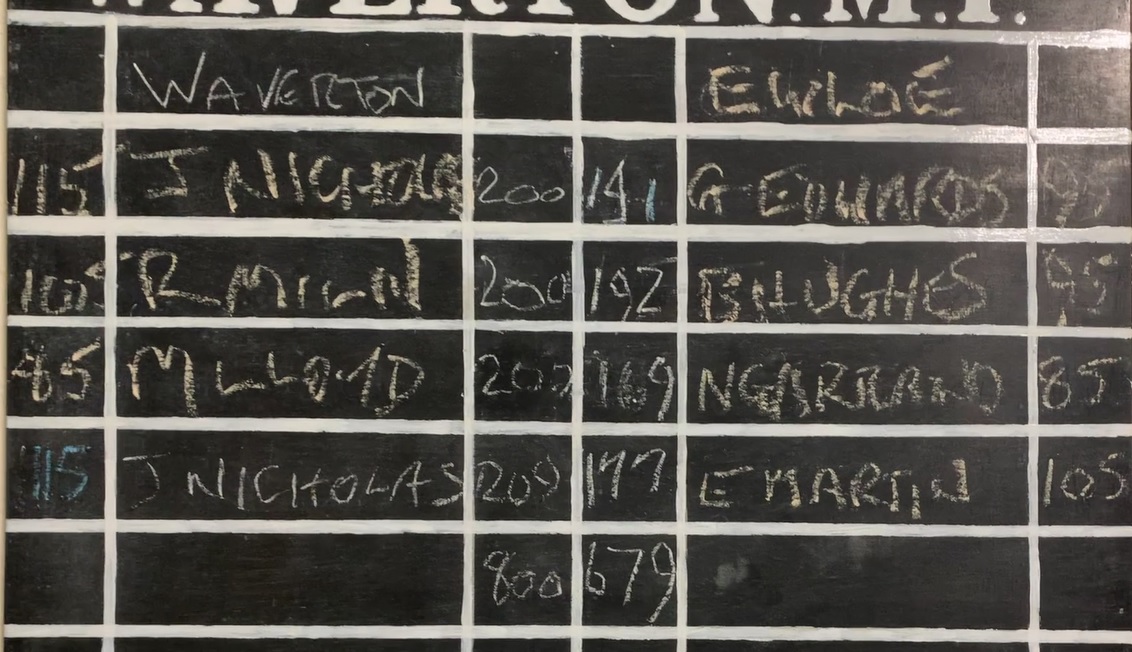 WAVERTON. M. I.
WAVERTON EWLOÉ
115 J NICHOLAS 200 141 G EDWARDS
105 R MILLN 200 192 B HUGHES 95
85 M LLOYD 200 169 N GARRAND 85
115 J NICHOLAS 200 177 E MARTIN 105
800 679